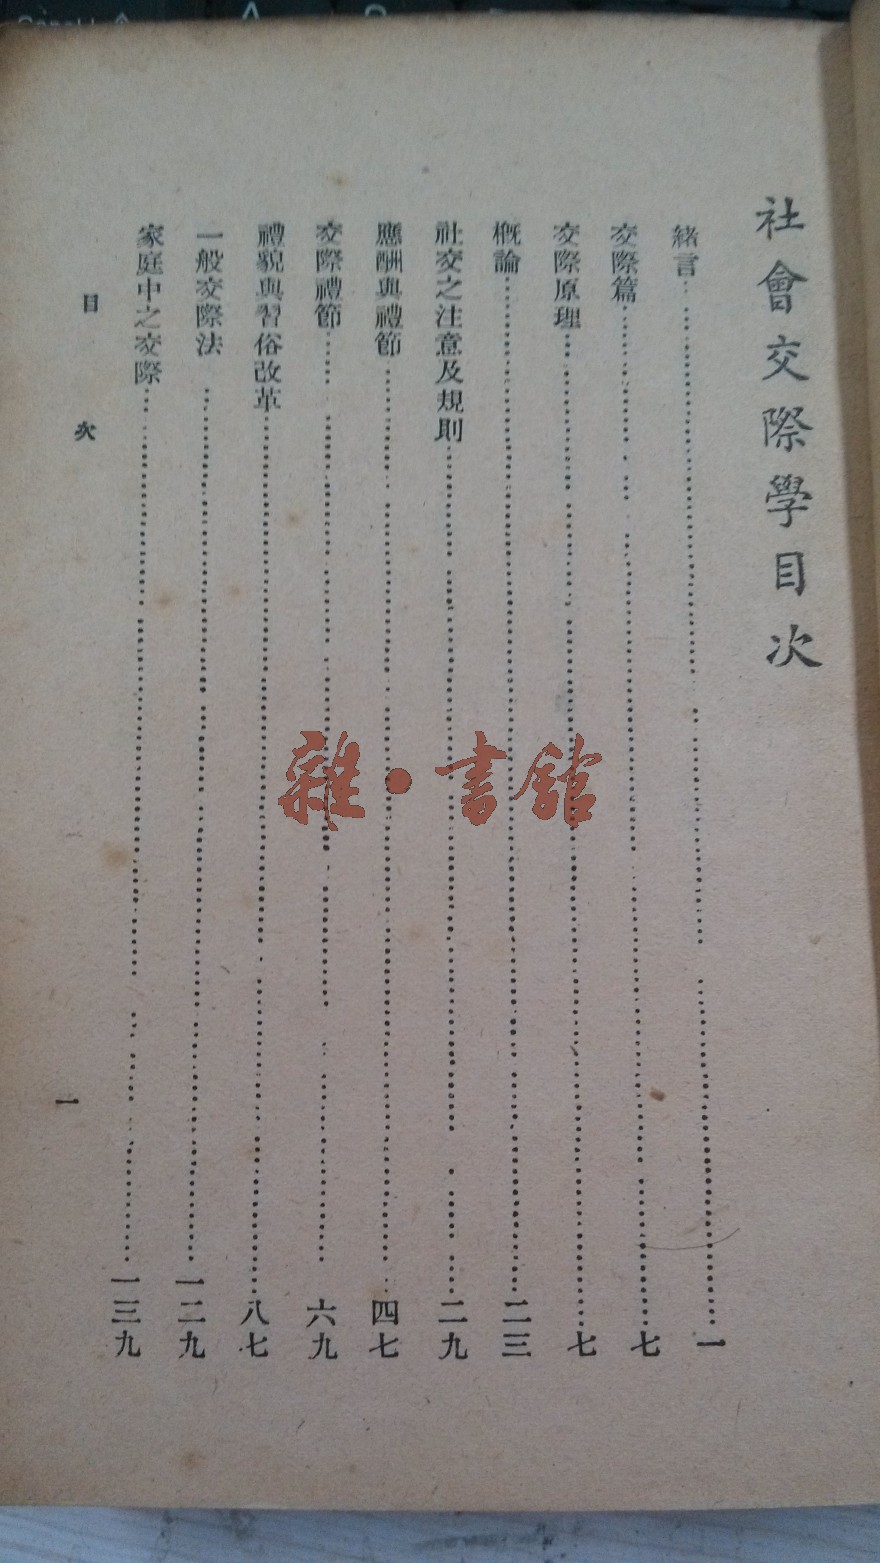 社會交際學目次
緒言……一
交際篇……七
交際原理……七
概論……二三
社交之注意及規則……二九
應酬與禮節……四七
交際禮節……六九
禮貌與習俗改革……八七
一般交際法……一二九
家庭中之交際……一三九
目次
一
雜·書舘